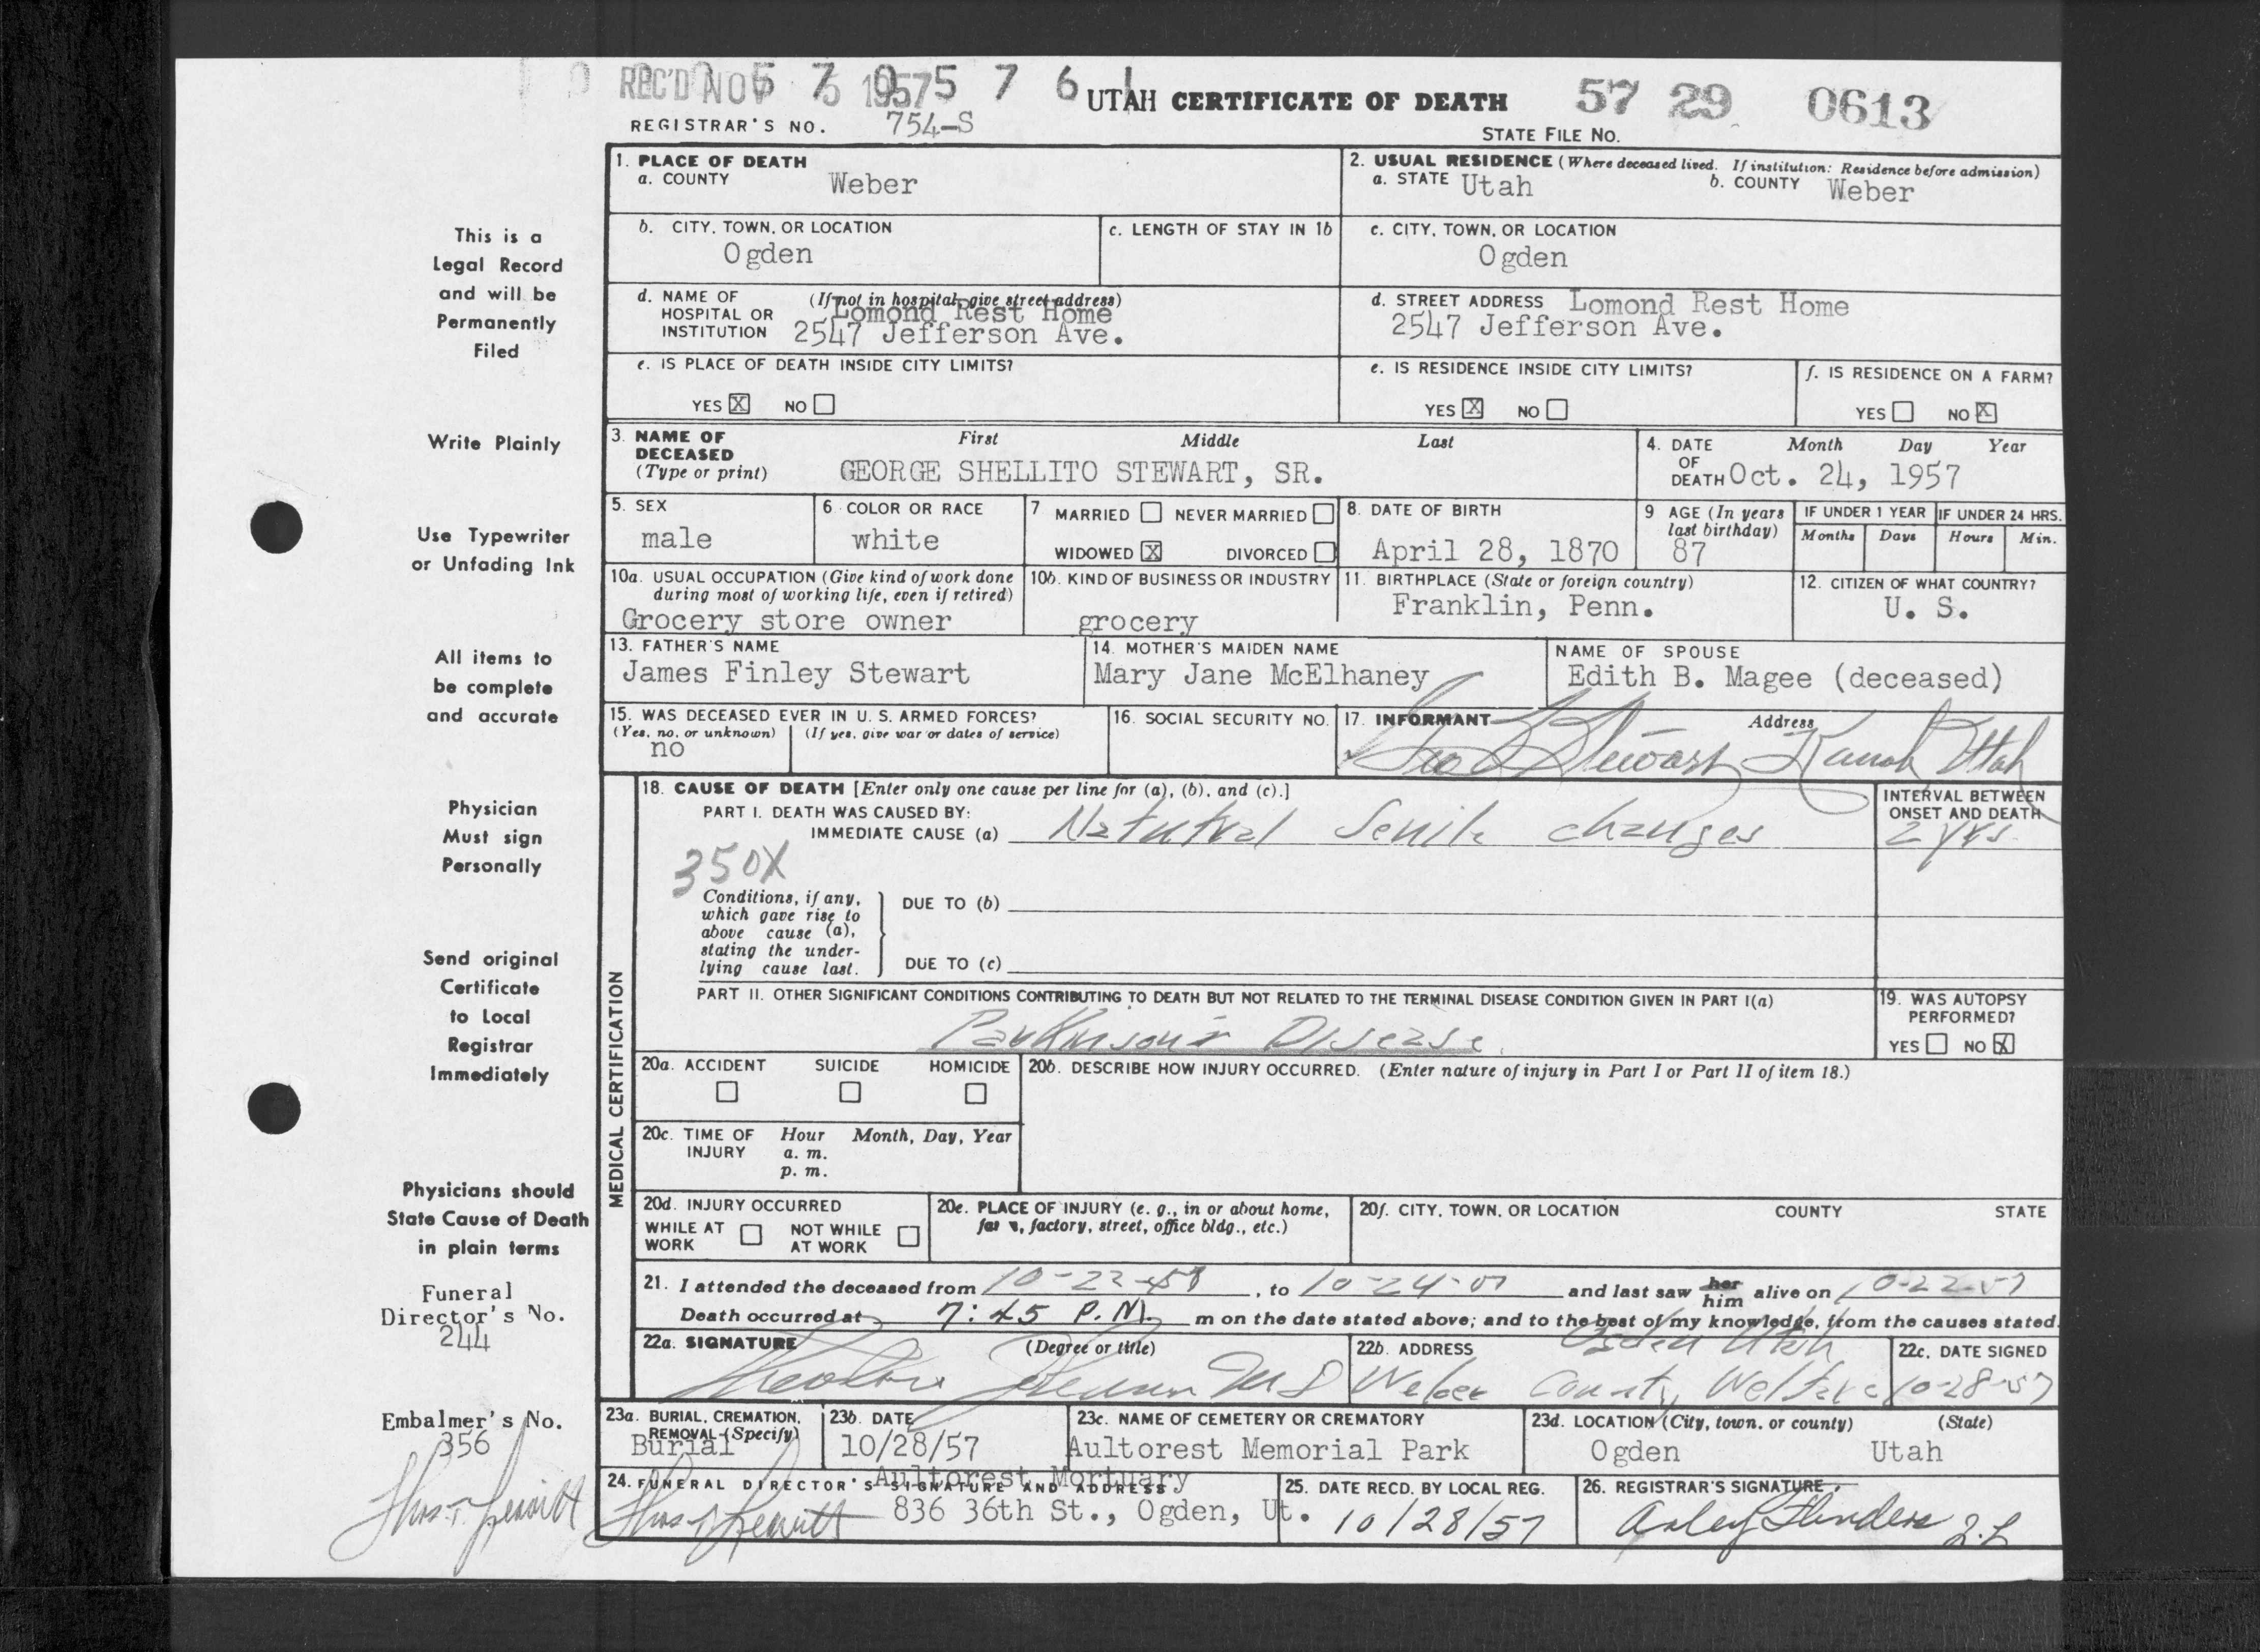 REC'D NOV 5 1957
UTAH CERTIFICATE OF DEATH 57 29 0613
REGISTRAR'S NO. 754-S
STATE FILE NO.
1. PLACE OF DEATH
a. COUNTY Weber
2. USUAL RESIDENCE (Where deceased lived. If institution: Residence before admission)
a. STATE Utah b. COUNTY Weber
b. CITY, TOWN, OR LOCATION
Ogden
c. LENGTH OF STAY IN 1b
c. CITY, TOWN, OR LOCATION
Ogden
d. NAME OF HOSPITAL OR INSTITUTION (If not in hospital, give street address)
Lomond Rest Home
2547 Jefferson Ave.
d. STREET ADDRESS Lomond Rest Home
2547 Jefferson Ave.
e. IS PLACE OF DEATH INSIDE CITY LIMITS?
YES X NO
e. IS RESIDENCE INSIDE CITY LIMITS?
YES X NO
f. IS RESIDENCE ON A FARM?
YES NO X
3. NAME OF DECEASED (Type or print)
First Middle Last
GEORGE SHELLITO STEWART, SR.
4. DATE OF DEATH Month Day Year
Oct. 24, 1957
5. SEX
male
6. COLOR OR RACE
white
7 MARRIED NEVER MARRIED
WIDOWED X DIVORCED
8. DATE OF BIRTH
April 28, 1870
9 AGE (In years last birthday)
87
IF UNDER 1 YEAR
Months Days
IF UNDER 24 HRS.
Hours Min.
10a. USUAL OCCUPATION (Give kind of work done during most of working life, even if retired)
Grocery store owner
10b. KIND OF BUSINESS OR INDUSTRY
grocery
11. BIRTHPLACE (State or foreign country)
Franklin, Penn.
12. CITIZEN OF WHAT COUNTRY?
U. S.
13. FATHER'S NAME
James Finley Stewart
14. MOTHER'S MAIDEN NAME
Mary Jane McElhaney
NAME OF SPOUSE
Edith B. Magee (deceased)
15. WAS DECEASED EVER IN U. S. ARMED FORCES?
(Yes, no, or unknown) (If yes, give war or dates of service)
no
16. SOCIAL SECURITY NO.
17. INFORMANT Address
Geo S Stewart Kanab Utah
MEDICAL CERTIFICATION
18. CAUSE OF DEATH [Enter only one cause per line for (a), (b), and (c).]
PART I. DEATH WAS CAUSED BY:
IMMEDIATE CAUSE (a) Natural Senile changes
INTERVAL BETWEEN ONSET AND DEATH
2 yrs.
350X
Conditions, if any, which gave rise to above cause (a), stating the underlying cause last.
DUE TO (b)
DUE TO (c)
PART II. OTHER SIGNIFICANT CONDITIONS CONTRIBUTING TO DEATH BUT NOT RELATED TO THE TERMINAL DISEASE CONDITION GIVEN IN PART I(a)
Parkinson's Disease
19. WAS AUTOPSY PERFORMED?
YES NO X
20a. ACCIDENT SUICIDE HOMICIDE
20b. DESCRIBE HOW INJURY OCCURRED. (Enter nature of injury in Part I or Part II of item 18.)
20c. TIME OF INJURY Hour Month, Day, Year
a. m.
p. m.
20d. INJURY OCCURRED
WHILE AT WORK NOT WHILE AT WORK
20e. PLACE OF INJURY (e. g., in or about home, farm, factory, street, office bldg., etc.)
20f. CITY, TOWN, OR LOCATION COUNTY STATE
21. I attended the deceased from 10-22-57, to 10-24-57 and last saw her him alive on 10-22-57
Death occurred at 7:45 P.M. m on the date stated above; and to the best of my knowledge, from the causes stated.
22a. SIGNATURE (Degree or title)
M D
22b. ADDRESS Ogden Utah
Weber County Welfare
22c. DATE SIGNED
10-28-57
23a. BURIAL, CREMATION, REMOVAL (Specify)
Burial
23b. DATE
10/28/57
23c. NAME OF CEMETERY OR CREMATORY
Aultorest Memorial Park
23d. LOCATION (City, town, or county) (State)
Ogden Utah
24. FUNERAL DIRECTOR'S SIGNATURE AND ADDRESS
Aultorest Mortuary
836 36th St., Ogden, Ut.
25. DATE RECD. BY LOCAL REG.
10/28/57
26. REGISTRAR'S SIGNATURE
This is a
Legal Record
and will be
Permanently
Filed
Write Plainly
Use Typewriter
or Unfading Ink
All items to
be complete
and accurate
Physician
Must sign
Personally
Send original
Certificate
to Local
Registrar
Immediately
Physicians should
State Cause of Death
in plain terms
Funeral
Director's No.
244
Embalmer's No.
356